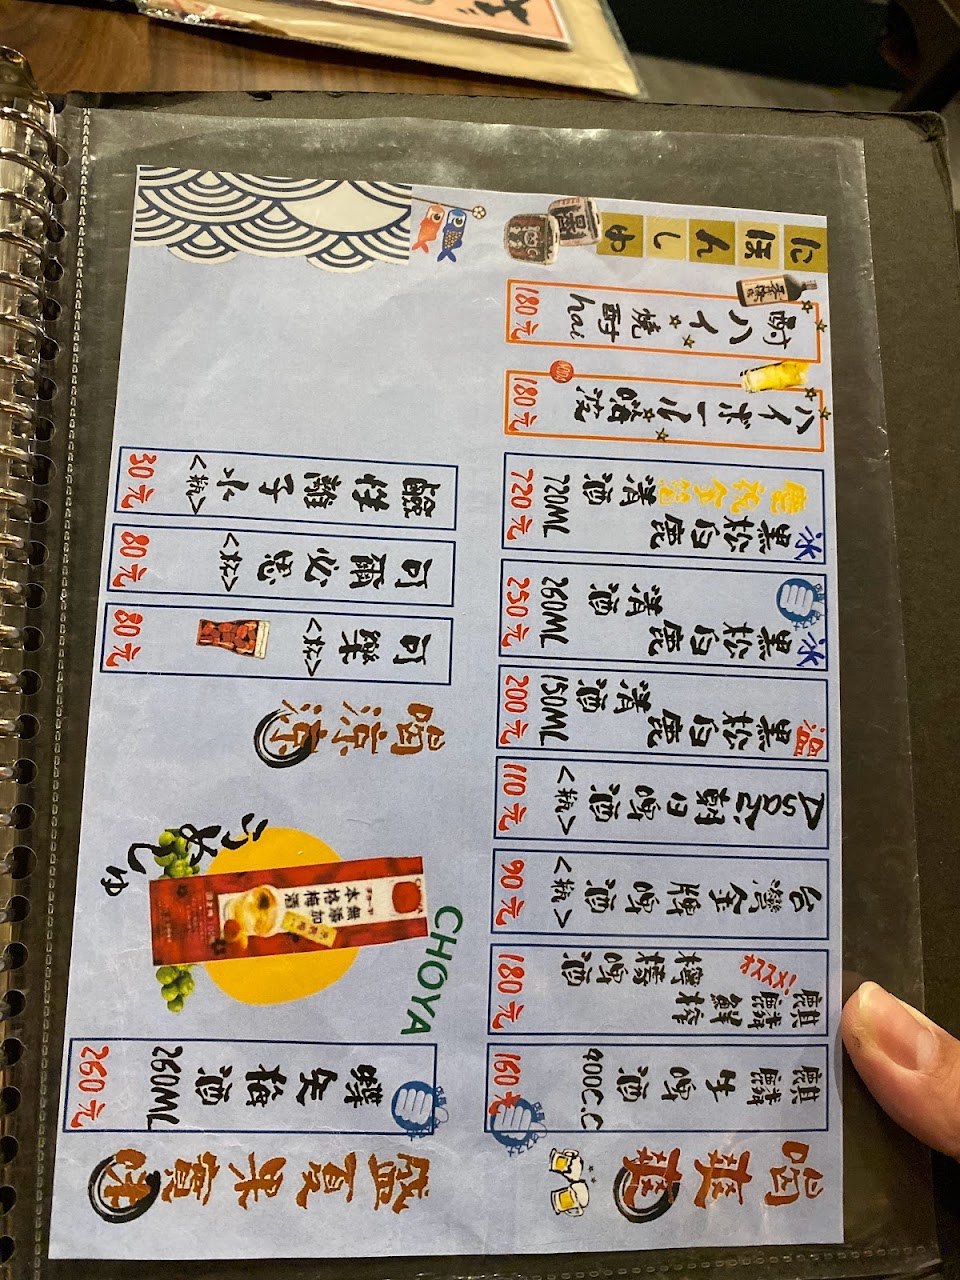 喝爽爽
麒麟生啤酒
400C.C
160元
麒麟鮮榨
檸檬啤酒
180元
台灣金牌啤酒
<瓶>
90元
朝日啤酒
<瓶>
110元
溫
黑松白鹿
清酒
150ML
200元
冰
黑松白鹿
清酒
260ML
250元
冰
黑松白鹿
慶祝金箔清酒
720ML
720元
ハイボール海波
180元
酎ハイ
燒酎hai
180元
にほんしゅ
盛夏果實味
蝶矢梅酒
260ML
260元
CHOYA
無添加
本格梅酒
うめしゅ
喝涼涼
可樂
<杯>
80元
可爾必思
<杯>
80元
鹼性離子水
<瓶>
30元